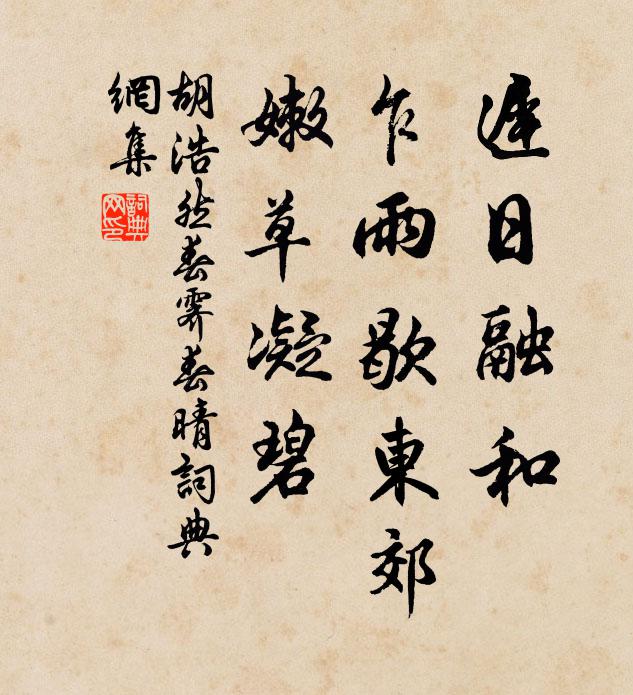 遲日融和
乍雨歇東郊
嫩草凝碧
胡浩然春霽春晴詞典
網集
詞典網印